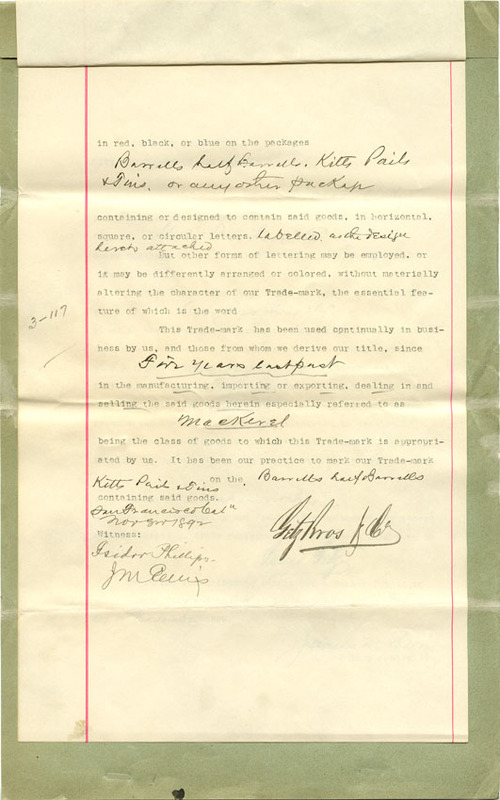 in red, black, or blue on the packages
Barrells half Barrells, Kitts Pails
& Tins, or any other package
containing or designed to contain said goods, in horizontal,
square, or circular letters. labelled as the design
hereto attached
But other forms of lettering may be employed, or
it may be differently arranged or colored, without materially
altering the character of our Trade-mark, the essential fea-
ture of which is the word
3-117
This Trade-mark has been used continually in busi-
ness by us, and those from whom we derive our title, since
Five Years last past
in the manufacturing, importing or exporting, dealing in and
selling the said goods herein especially referred to as
Mackerel
being the class of goods to which this Trade-mark is appropri-
ated by us. It has been our practice to mark our Trade-mark
Kitts Pails & Tins on the Barrells half Barrells
containing said goods.
San Francisco Cal
Nov 1892
Witness:
Getz Bros & Co
Isidor Phillips
J M